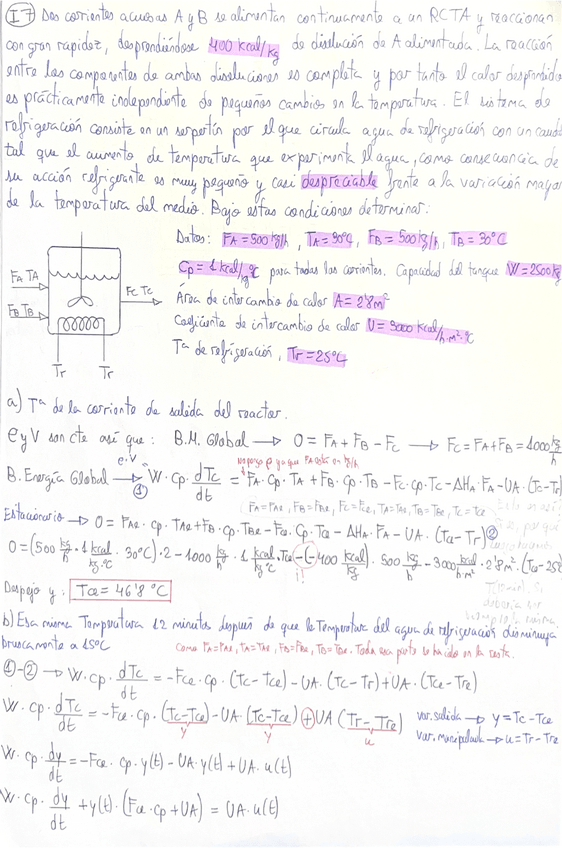 I7 Dos corrientes acuosas A y B se alimentan continuamente a un RCTA y reaccionan
con gran rapidez, desprendiéndose 400 kcal/kg de disolución de A alimentada. La reacción
entre los componentes de ambas disoluciones es completa y por tanto el calor desprendido
es prácticamente independiente de pequeños cambios en la temperatura. El sistema de
refrigeración consiste en un serpentín por el que circula agua de refrigeración con un caudal
tal que el aumento de temperatura que experimenta el agua, como consecuencia de
su acción refrigerante es muy pequeño y casi despreciable frente a la variación mayor
de la temperatura del medio. Bajo estas condiciones determinar:
Datos: FA = 500 kg/h, TA = 30ºC, FB = 500 kg/h, TB = 30ºC
Cp = 1 kcal/kg ºC para todas las corrientes. Capacidad del tanque W = 2500 kg
Área de intercambio de calor A = 2'8 m²
Coeficiente de intercambio de calor U = 3000 kcal/h·m²·ºC
Tª de refrigeración, Tr = 25ºC
FA TA
FB TB
FC TC
Tr Tr
a) Tª de la corriente de salida del reactor.
ρ y V son cte así que: B.M. Global → 0 = FA + FB - FC → FC = FA + FB = 1000 kg/h
ρ·V
B. Energía Global → W · Cp · dTc/dt = FA · Cp · TA + FB · Cp · TB - FC · Cp · TC - ΔHA · FA - UA · (Tc - Tr) ①
(FA = FAe, FB = FBe, FC = FCe, TA = TAe, TB = TBe, Tc = Tce
Estacionario → 0 = FAe · Cp · TAe + FB · Cp · TBe - FCe · Cp · Tce - ΔHA · FA - UA · (Tce - Tr) ②
0 = (500 kg/h · 1 kcal/kg ºC · 30ºC) · 2 - 1000 kg/h · 1 kcal/kg ºC · Tce - (-400 kcal/kg) · 500 kg/h - 3000 kcal/h·m² · 2'8 m² · (Tce - 25)
¡!
Despejo y: Tce = 46'8 ºC
b) Esa misma Temperatura 12 minutos después de que la Temperatura del agua de refrigeración disminuya
bruscamente a 15ºC
Como FA = FAe, TA = TAe, FB = FBe, TB = TBe. Toda esa parte se ha ido en la resta.
①-② → W · Cp · dTc/dt = -Fce · Cp · (Tc - Tce) - UA · (Tc - Tr) + UA · (Tce - Tre)
W · Cp · dTc/dt = -Fce · Cp · (Tc - Tce) - UA · (Tc - Tce) + UA (Tr - Tre)
y y u
var. salida → y = Tc - Tce
var. manipulada → u = Tr - Tre
W · Cp · dy/dt = -Fce · Cp · y(t) - UA · y(t) + UA · u(t)
W · Cp · dy/dt + y(t) · (Fce · Cp + UA) = UA · u(t)